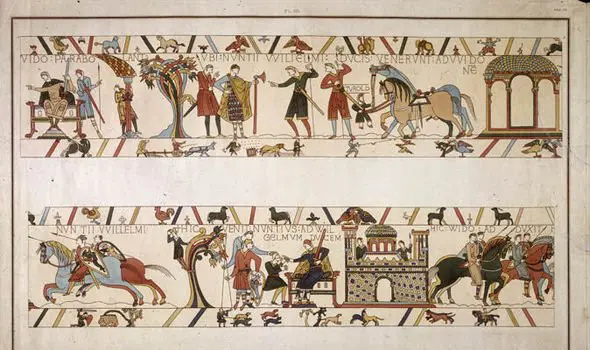 VIDO: PARABO LAN VBI: NVNTII VVILLELMI: DVCIS VENERVNT: AD VVIDO
NE
TVROLD
NVNTII VVILLELMI
HIC VENIT: NVNTIVS: AD WIL
GELMVM DVCEM
HIC WIDO: AD DVXIT